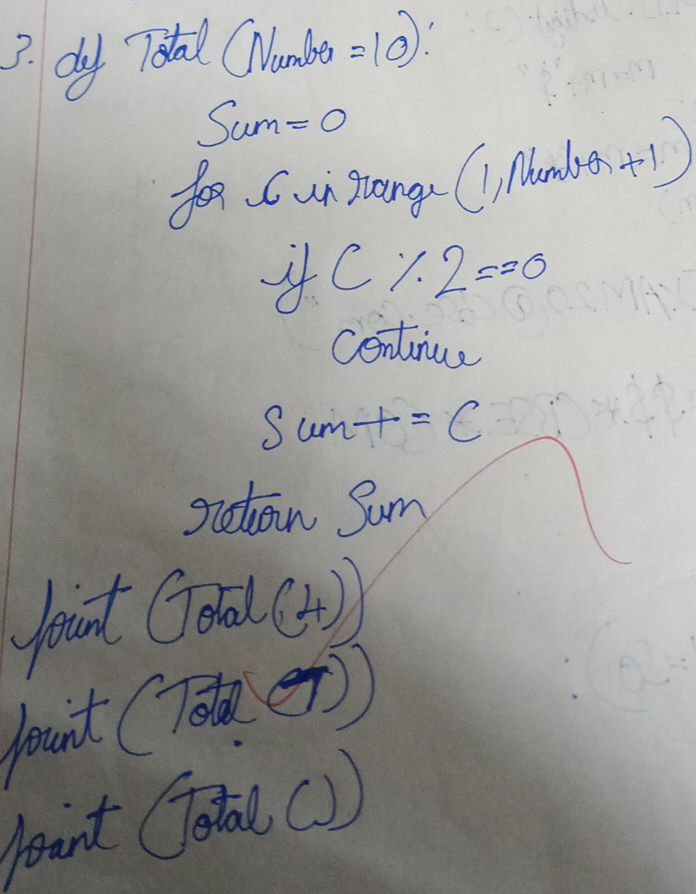 3. def Total (Number = 10):
Sum = 0
for C in range (1, Number + 1)
if C % 2 == 0
Continue
Sum + = C
return Sum
print (Total (4))
print (Total (7))
print (Total ())